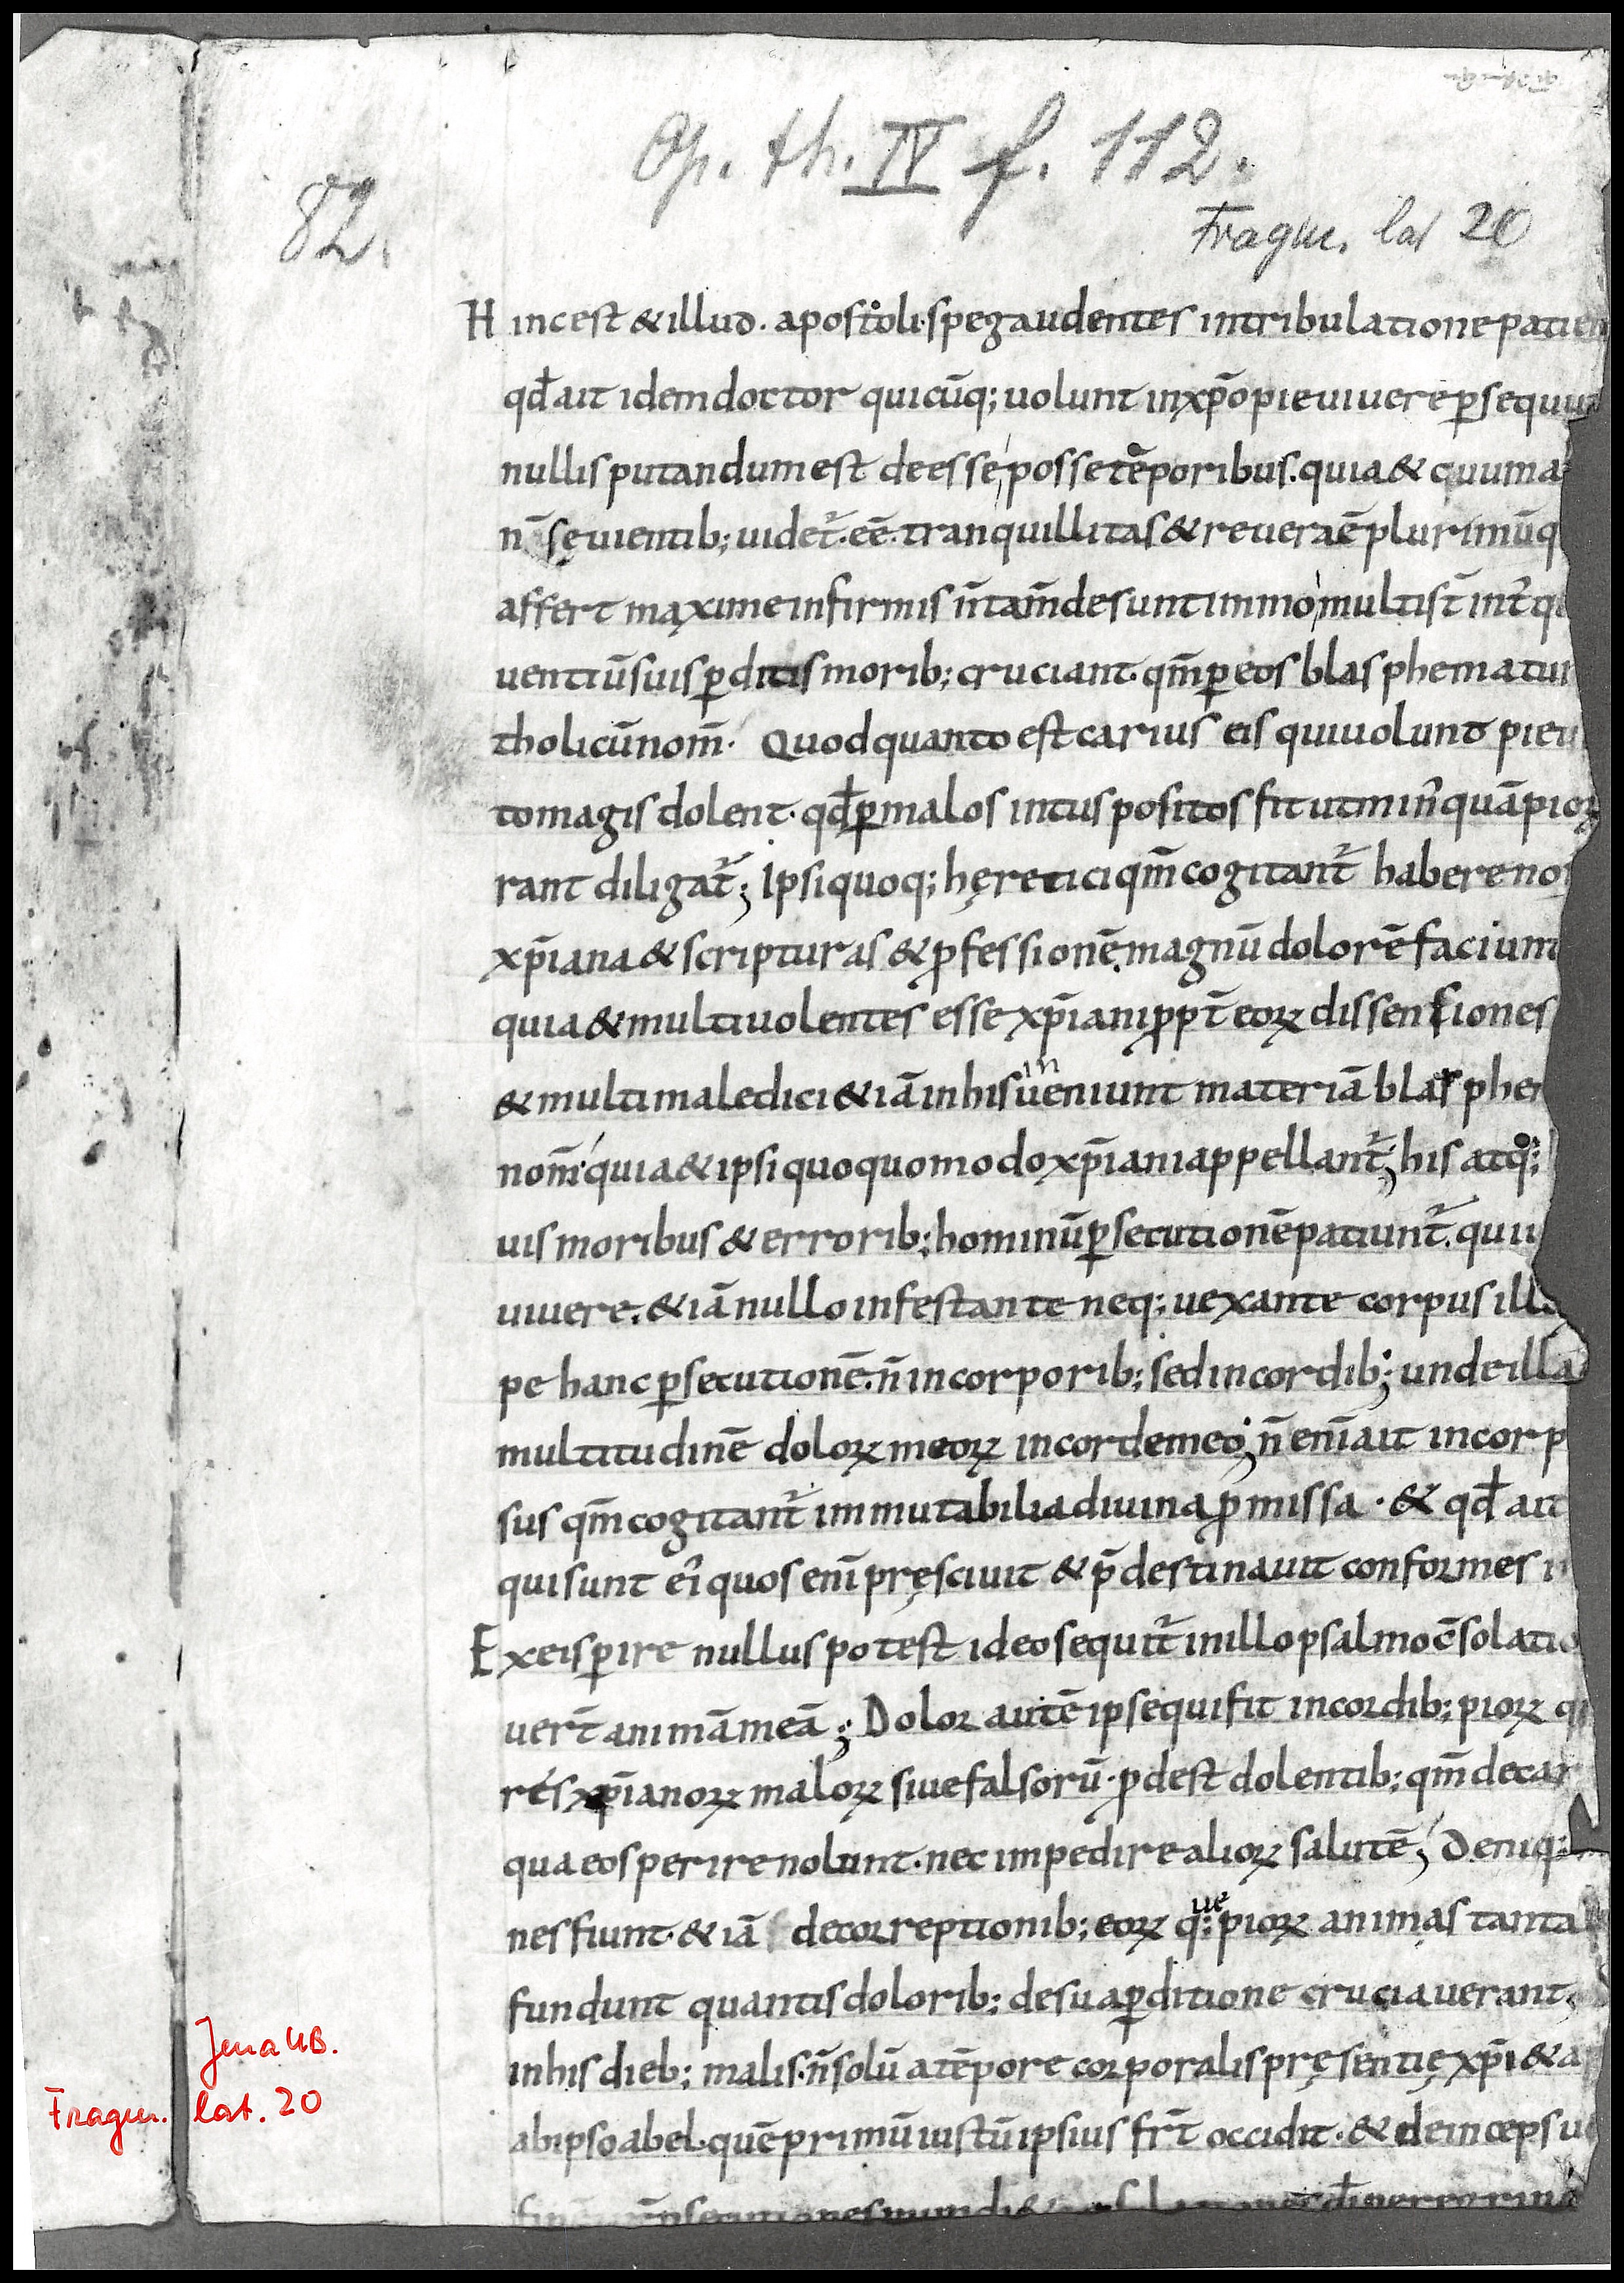 Op. th. IV f. 112.
82.
Fragm. lat 20
H incest & illud. apostoli. spe gaudentes intribulatione patien
qđ ait idem doctor quicūq; uolunt inxp̄o pie uiuere ꝑsequu
nullis putandum est deesse posse tēporibus. quia & cuuma
n̄ sęuientib; uidet᷑. eē. tranquillitas & reuera ē plurimūq
affert maxime infirmis n̄ tam̄ desunt immo multi st̄ int᷑ q
uentiū suis ꝑditis morib; cruciant. qm̄ ꝑ eos blasphematur
tholicū nom̄. Quod quanto est carius eis qui uolunt pie u
to magis dolent. qđ ꝑ malos intus positos fit ut min᷒ quā pioꝝ
rant diligat᷑; Ipsi quoq; hęretici qm̄ cogitant᷑ habere no
xp̄iana & scripturas & ꝓfessionē. magnū dolorē faciunt
quia & multi uolentes esse xp̄iani ꝓpt̄ eoꝝ dissensiones
& multi maledici & iā in his inueniunt materiā blasphe
nom̄. quia & ipsi quoquo modo xp̄iani appellant᷑; his atq;
uis moribus & errorib; hominū ꝑsecutionē patiunt᷑. qui u
uiuere. & iā nullo infestante neq; uexante corpus ill
pe hanc ꝑsecutionē. n̄ in corporib; sed in cordib; unde illa
multitudinē doloꝝ meoꝝ in corde meo; n̄ enī ait in corp
sus qm̄ cogitant᷑ immutabilia diuina ꝓmissa. & qđ ait
qui sunt ei᷒ quos enī pręsciuit & p̄destinauit conformes i
E x eis ꝑire nullus potest ideo sequit᷑ in illo psalmo c̄solatio
uert̄ animā meā; Dolor autē ipse qui fit in cordib; pioꝝ q
res xp̄ianoꝝ maloꝝ siue falsorū. ꝓdest dolentib; qm̄ de car
qua eos perire nolunt. nec impedire alioꝝ salutē; Deniq;
nes fiunt. & iā de correptionib; eoꝝ q;ue pioꝝ animas tanta
fundunt quantis dolorib; de sua ꝑditione cruciauerant.
in his dieb; malis. n̄ solū a tēpore corporalis pręsentię xp̄i & a
ab ipso abel. quē primū iustū ipsius fr̄t occidit. & deinceps u
Jena UB.
Fragm. lat. 20